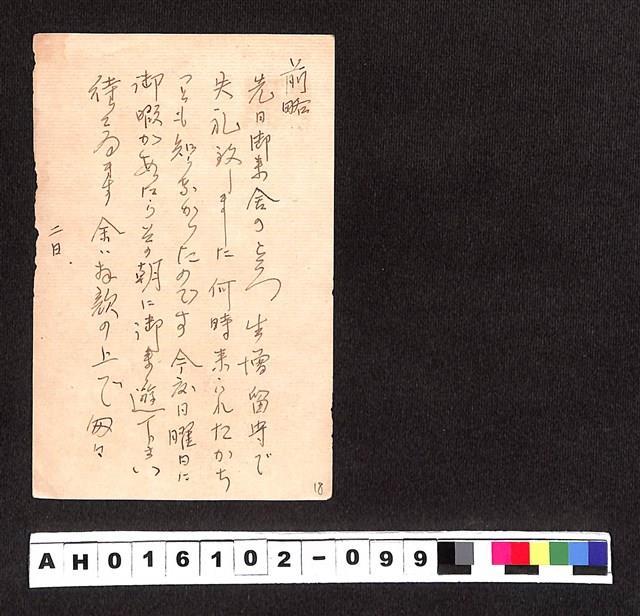 前略
先日御来舎のところ生憎留守で
失礼致しました何時来られたかち
っとも知らなかったのです今度日曜日に
御暇があったら朝に御来遊下さい
待って居ます余はお歓の上で 匆々
二日.
18
AH016102-099